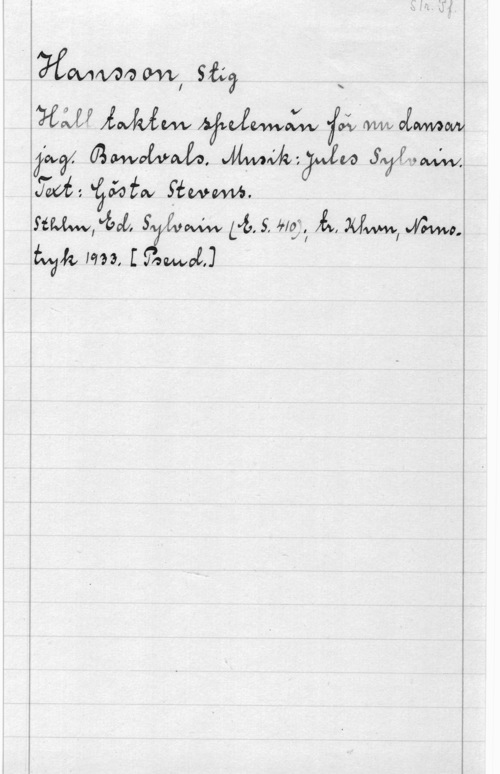 Str. Sf.
Hansson, Stig
Håll takten spelemän för nu dansar
jag. Bondvals. Musik: Jules Sylvain.
Text: Gösta Stevens.
Sthlm, Ed. Sylvain (E. S. 410); tr. Khvn, Nomo-
tryk 1933. [Pseud.]